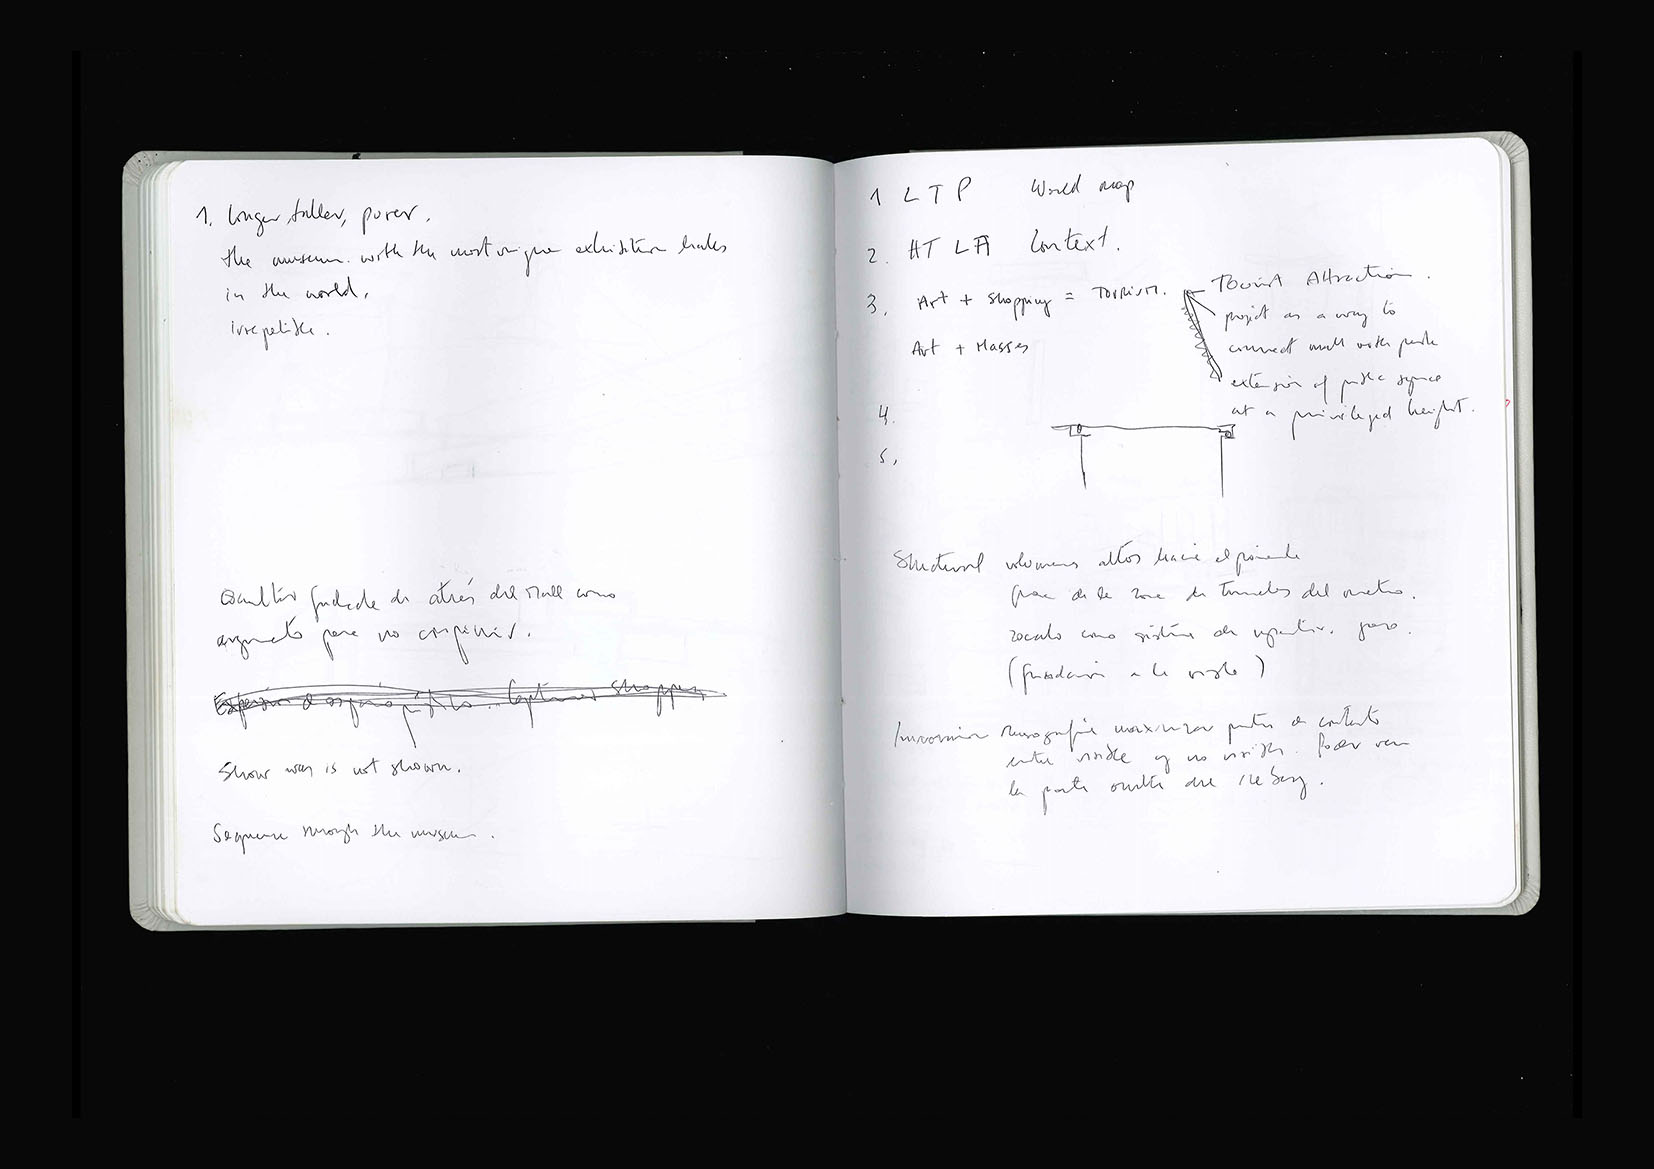 1. Longer, taller, purer.
the museum with the most unique exhibition halls
in the world.
irrepetible.
Ocultar fachada de atrás del Mall como
argumento para no
Show was is not shown.
Sequence through the museum.
1 LTP World map
2. HTLA Context.
3. Art + Shopping = Tourism.
Art + Masses
Tourist Attraction.
project as a way to
connect mall with park
extension of public space
at a privileged height.
4.
5.
Structural volumenes altos hacia el poniente
de la zona de tuneles del metro.
zocalo como sistema de
( a la vista )
maximizar puntos de contacto
entre visible y no visible. Poder ver
la parte oculta del iceberg.